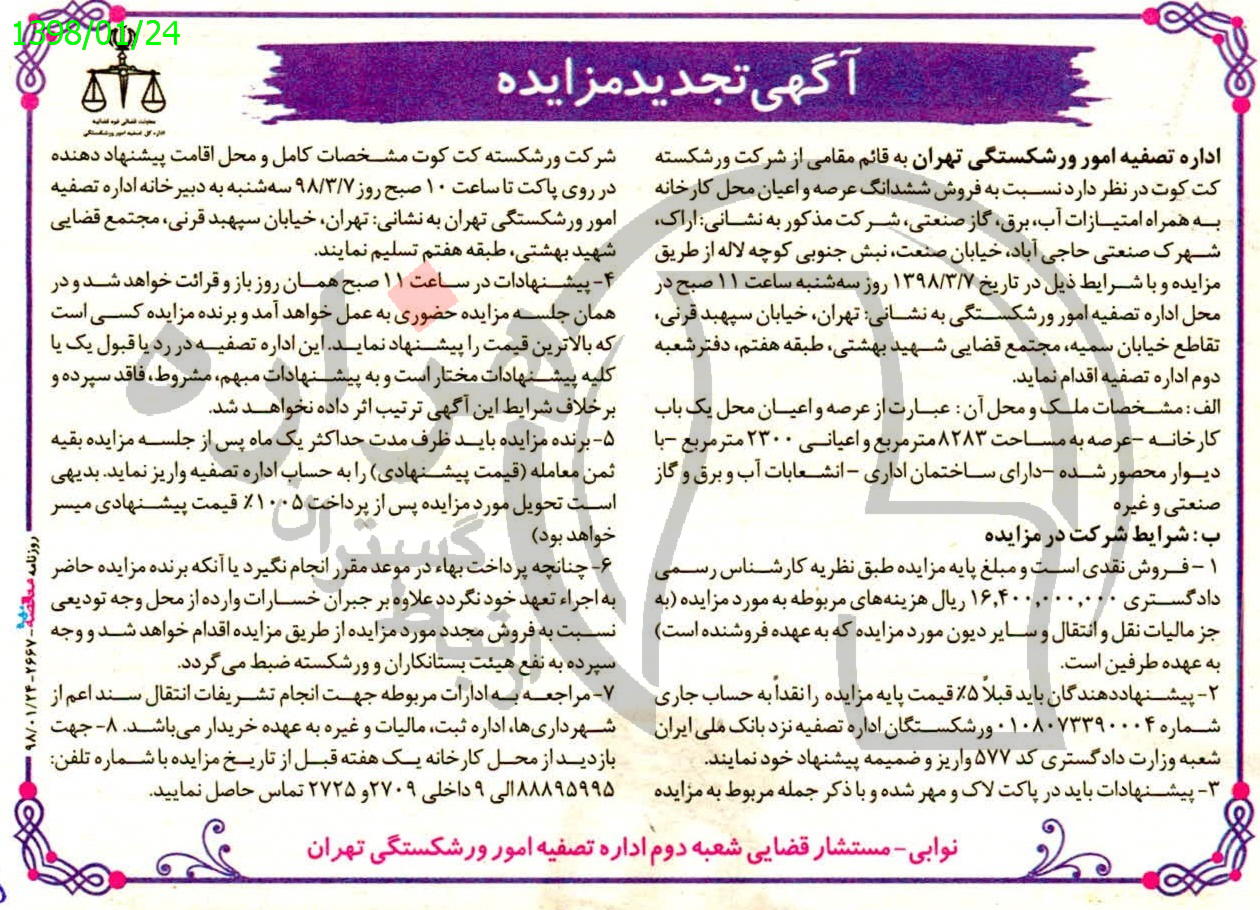 1398/01/24
معاونت قضائی قوه قضائیه
اداره کل تصفیه امور ورشکستگی
آگهی تجدید مزایده
اداره تصفیه امور ورشکستگی تهران به قائم مقامی از شرکت ورشکسته
کت کوت در نظر دارد نسبت به فروش ششدانگ عرصه و اعیان محل کارخانه
به همراه امتیازات آب، برق، گاز صنعتی، شرکت مذکور به نشانی: اراک،
شهرک صنعتی حاجی آباد، خیابان صنعت، نبش جنوبی کوچه لاله از طریق
مزایده و با شرایط ذیل در تاریخ ۱۳۹۸/۳/۷ روز سه‌شنبه ساعت ۱۱ صبح در
محل اداره تصفیه امور ورشکستگی به نشانی: تهران، خیابان سپهبد قرنی،
تقاطع خیابان سمیه، مجتمع قضایی شهید بهشتی، طبقه هفتم، دفتر شعبه
دوم اداره تصفیه اقدام نماید.
الف: مشخصات ملک و محل آن: عبارت از عرصه و اعیان محل یک باب
کارخانه –عرصه به مساحت ۸۲۸۳مترمربع و اعیانی ۲۳۰۰ متر مربع –با
دیوار محصور شده –دارای ساختمان اداری – انشعابات آب و برق و گاز
صنعتی و غیره
ب: شرایط شرکت در مزایده
۱ – فروش نقدی است و مبلغ پایه مزایده طبق نظریه کارشناس رسمی
دادگستری ۱۶,۴۰۰,۰۰۰,۰۰۰ ریال هزینه‌های مربوطه به مورد مزایده (به
جز مالیات نقل و انتقال و سایر دیون مورد مزایده که به عهده فروشنده است)
به عهده طرفین است.
۲- پیشنهاددهندگان باید قبلاً ۵٪ قیمت پایه مزایده را نقداً به حساب جاری
شماره ۰۱۰۸۰۷۳۳۹۰۰۰۴ ورشکستگان اداره تصفیه نزد بانک ملی ایران
شعبه وزارت دادگستری کد ۵۷۷ واریز و ضمیمه پیشنهاد خود نمایند.
۳- پیشنهادات باید در پاکت لاک و مهر شده و با ذکر جمله مربوط به مزایده
شرکت ورشکسته کت کوت مشخصات کامل و محل اقامت پیشنهاد دهنده
در روی پاکت تا ساعت ۱۰ صبح روز ۹۸/۳/۷ سه‌شنبه به دبیرخانه اداره تصفیه
امور ورشکستگی تهران به نشانی: تهران، خیابان سپهبد قرنی، مجتمع قضایی
شهید بهشتی، طبقه هفتم تسلیم نمایند.
۴- پیشنهادات در ساعت ۱۱ صبح همان روز باز و قرائت خواهد شد و در
همان جلسه مزایده حضوری به عمل خواهد آمد و برنده مزایده کسی است
که بالاترین قیمت را پیشنهاد نماید. این اداره تصفیه در رد یا قبول یک یا
کلیه پیشنهادات مختار است و به پیشنهادات مبهم، مشروط، فاقد سپرده و
برخلاف شرایط این آگهی ترتیب اثر داده نخواهد شد.
۵- برنده مزایده باید ظرف مدت حداکثر یک ماه پس از جلسه مزایده بقیه
ثمن معامله (قیمت پیشنهادی) را به حساب اداره تصفیه واریز نماید. بدیهی
است تحویل مورد مزایده پس از پرداخت ۱۰۰۵٪ قیمت پیشنهادی میسر
خواهد بود)
۶- چنانچه پرداخت بهاء در موعد مقرر انجام نگیرد یا آنکه برنده مزایده حاضر
به اجراء تعهد خود نگردد علاوه بر جبران خسارات وارده از محل وجه تودیعی
نسبت به فروش مجدد مورد مزایده از طریق مزایده اقدام خواهد شد و وجه
سپرده به نفع هیئت بستانکاران و ورشکسته ضبط می گردد.
۷- مراجعه به ادارات مربوطه جهت انجام تشریفات انتقال سند اعم از
شهرداری‌ها، اداره ثبت، مالیات و غیره به عهده خریدار می‌باشد. ۸- جهت
بازدید از محل کارخانه یک هفته قبل از تاریخ مزایده با شماره تلفن:
۸۸۸۹۵۹۹۵الی ۹ داخلی ۲۷۰۹و ۲۷۲۵ تماس حاصل نمایید.
نوابی- مستشار قضایی شعبه دوم اداره تصفیه امور ورشکستگی تهران
روزنامه مناقصه مزایده -۲۶۶۷- ۹۸/۰۱/۲۴
هزاره
گستران
ارتباط